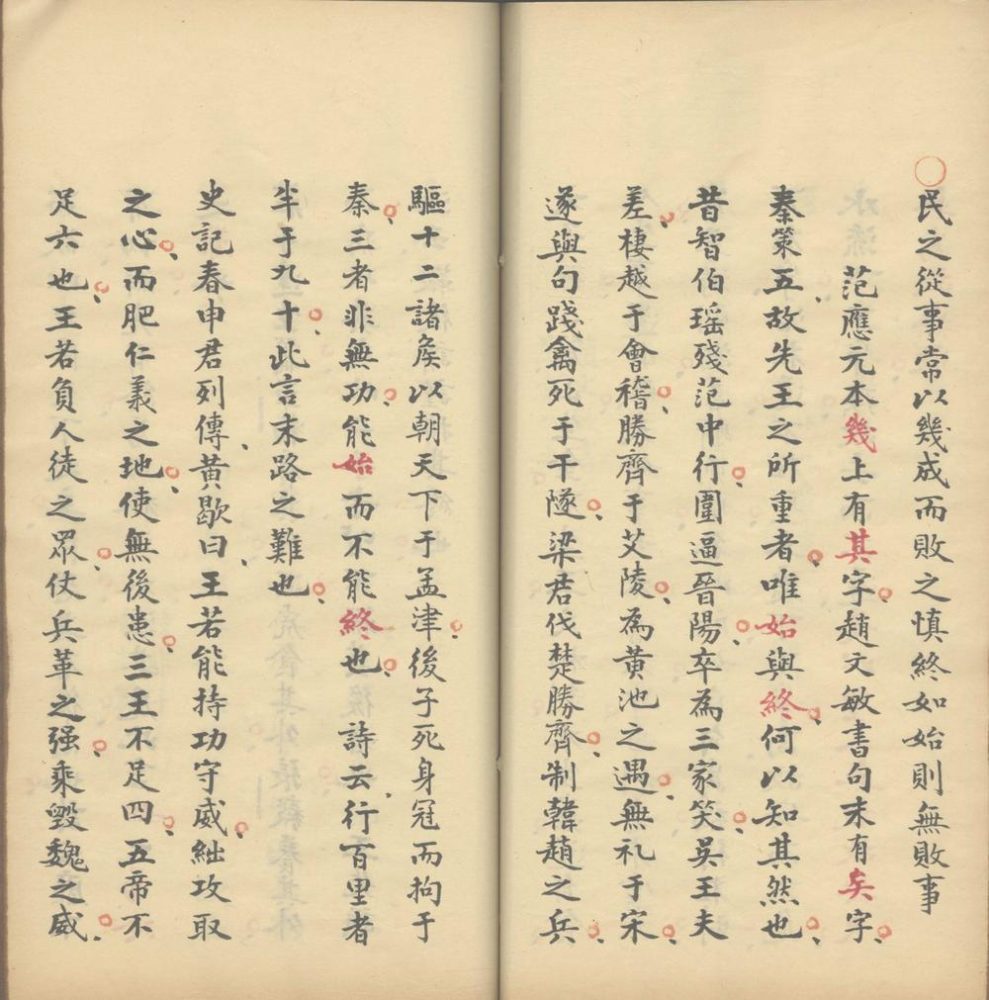 民之從事常以幾成而敗之慎終如始則無敗事
范應元本幾上有其字趙文敏書句末有矣字
秦策五故先王之所重者唯始與終何以知其然也
昔智伯瑶殘范中行圍逼晉陽卒為三家笑吳王夫
差棲越于會稽勝齊于艾陵為黃池之遇無礼于宋
遂與句踐禽死于干隧梁君伐楚勝齊制韓趙之兵
驅十二諸矦以朝天下于孟津後子死身冠而拘于
秦三者非無功能始而不能終也 詩云行百里者
半于九十此言末路之難也
史記春申君列傳黃歇曰王若能持功守威絀攻取
之心而肥仁義之地使無後患三王不足四五帝不
足六也王若負人徒之眾仗兵革之强乘毀魏之威